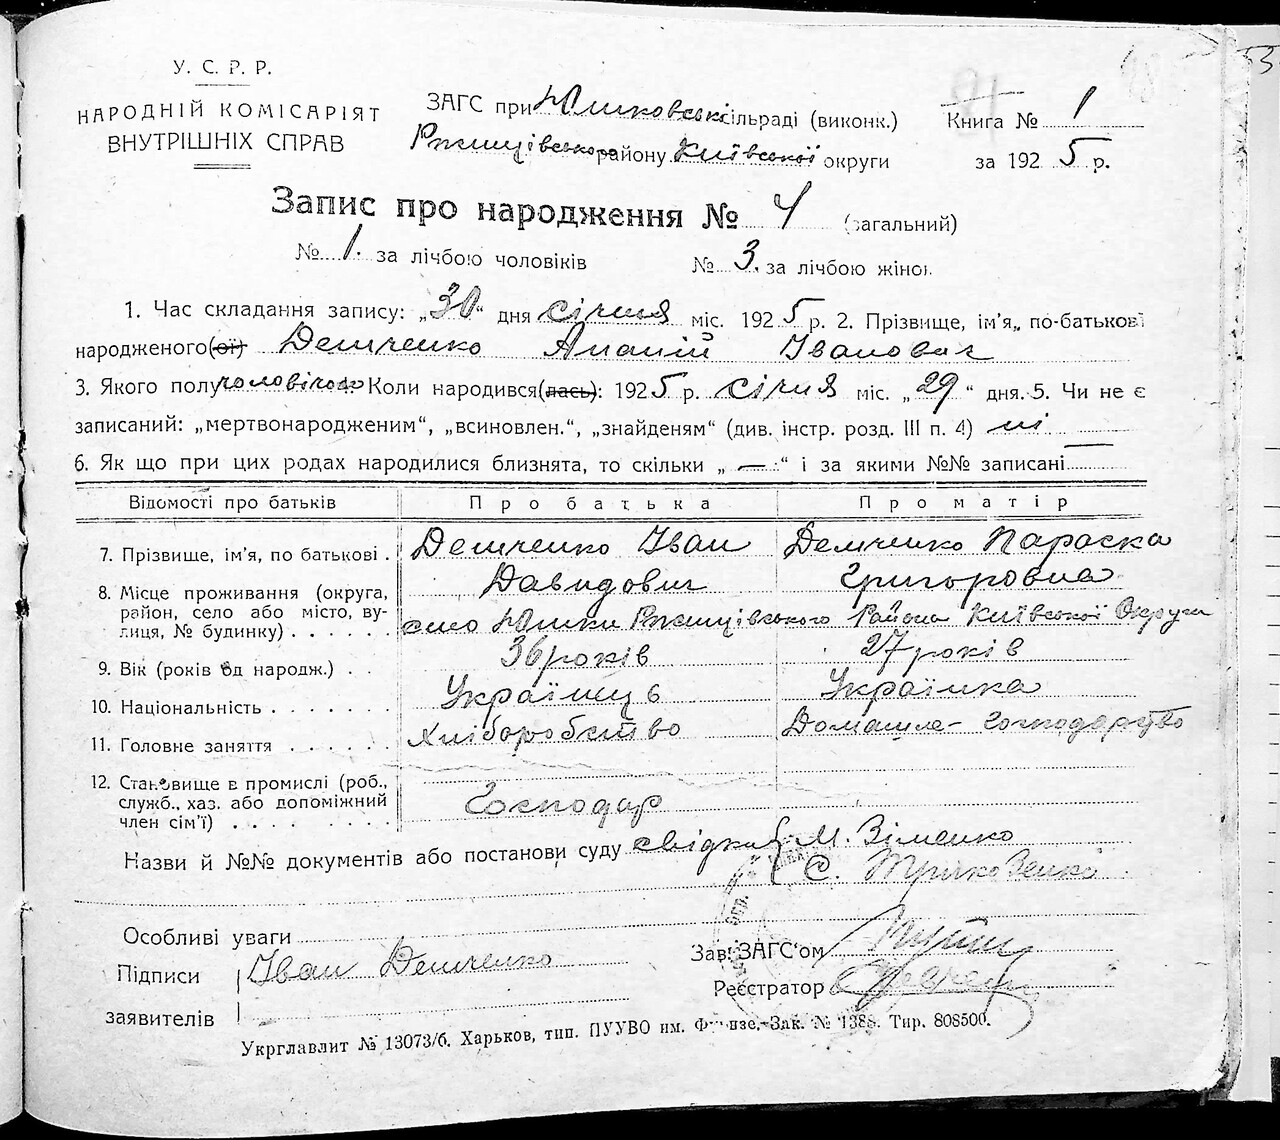 У. С. Р. Р.
НАРОДНІЙ КОМІСАРІЯТ
ВНУТРІШНІХ СПРАВ
ЗАГС при Юшковські сільраді (виконк.)
Ржищівського району Київської округи
Книга № 1
за 1925 р.
Запис про народження № 4 (загальний)
№ 1. за лічбою чоловіків № 3. за лічбою жінок
1. Час складання запису: „30“ дня січня міс. 1925 р. 2. Прізвище, ім'я, по-батькові
народженого(ої) Демченко Ананій Іванович
3. Якого полу чоловічого 4. Коли народився(лась): 1925 р. січня міс. „29“ дня. 5. Чи не є
записаний: „мертвонародженим“, „всиновлен.“, „знайденям“ (див. інстр. розд. III п. 4) ні
6. Як що при цих родах народилися близнята, то скільки „—“ і за якими №№ записані
Відомості про батьків Про батька Про матір
7. Прізвище, ім'я, по батькові . Демченко Іван Демченко Параска
Давидович Григоровна
8. Місце проживання (округа,
район, село або місто, ву-
лиця, № будинку) . . . . . . село Юшки Ржищівського Района Київської Округи
9. Вік (років від народж.) . . 36 років 27 років
10. Національність . . . . . . . Українець Українка
11. Головне заняття . . . . . . Хліборобство Домашнє-Господарство
12. Становище в промислі (роб.,
служб., хаз. або допоміжний
член сім'ї) . . . . . . . . Господар
Назви й №№ документів або постанови суду свідки М. Зіменко
С.
Особливі уваги
Підписи Іван Демченко
заявителів
Зав. ЗАГС'ом
Реєстратор
Укрглавлит № 13073/б. Харьков, тип. ПУУВО им. Фрунзе. Зак. № 1388. Тир. 808500.